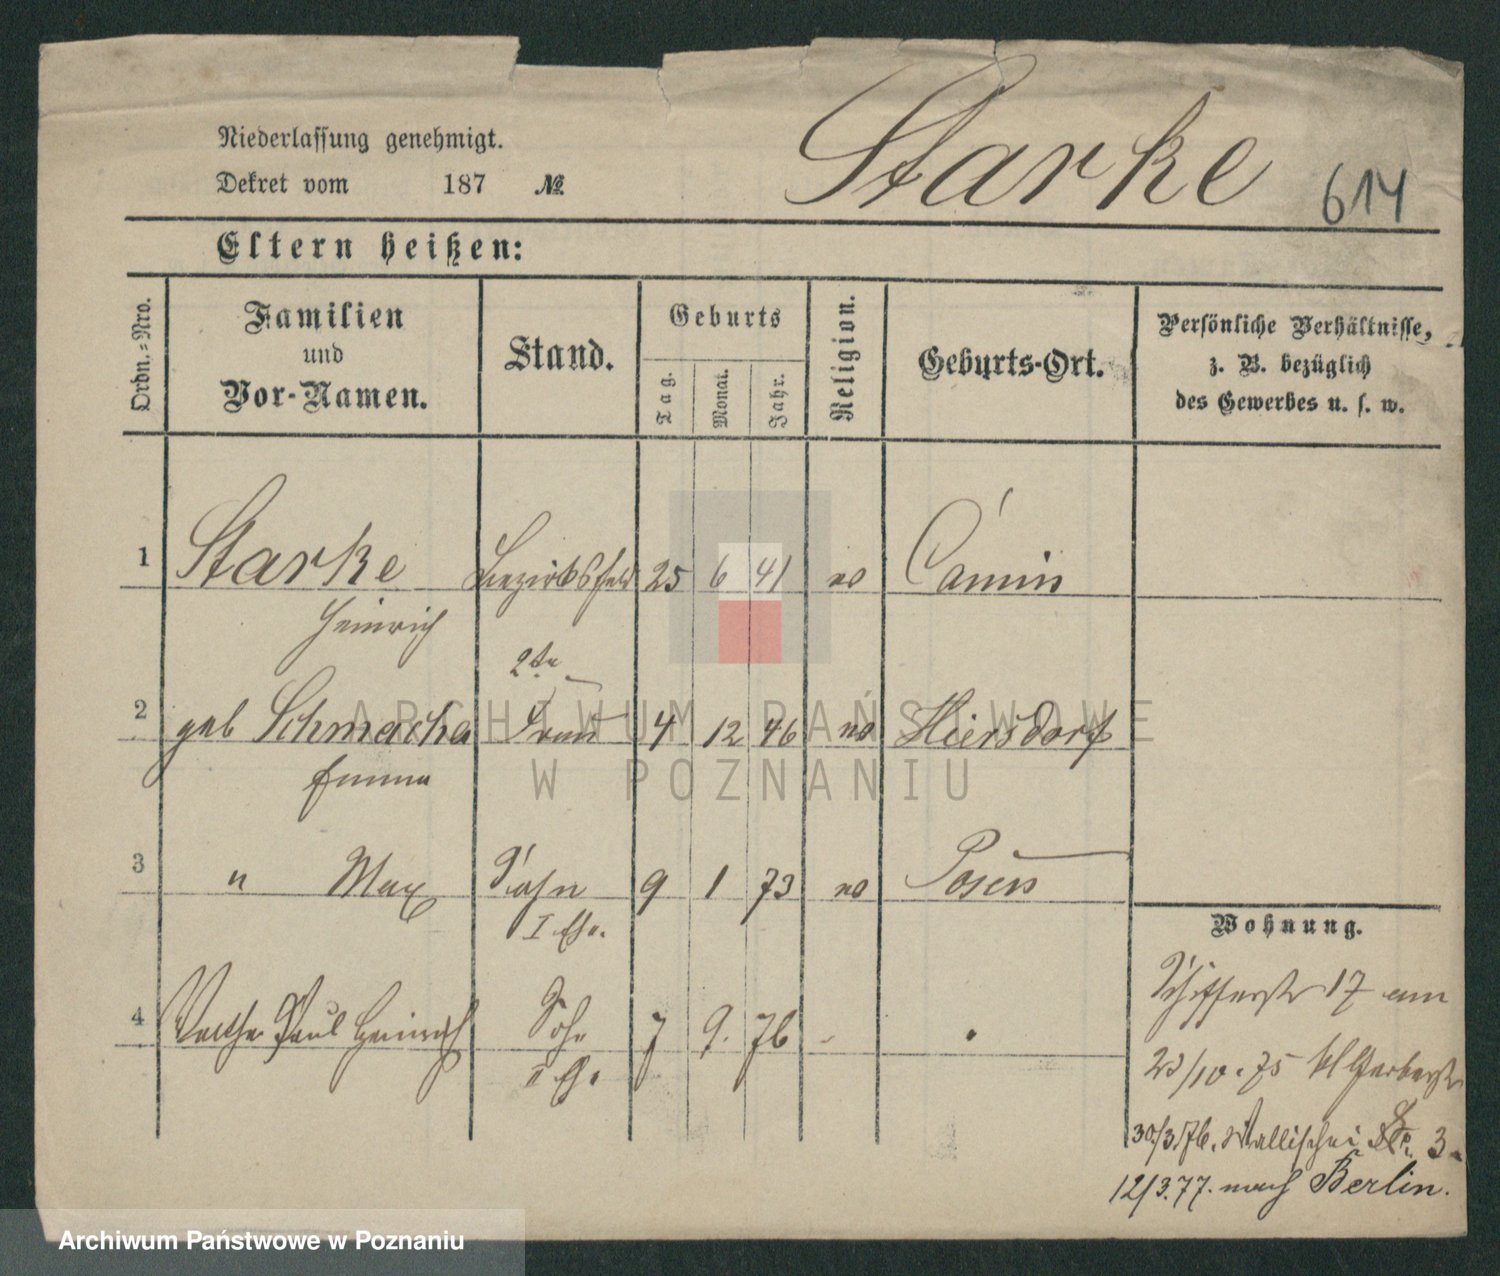 Niederlassung genehmigt.
Dekret vom 187 №
Starke
614
Eltern heißen:
Ordn.-Nro.
Familien
und
Vor-Namen.
Stand.
Geburts
Tag.
Monat.
Jahr.
Religion.
Geburts-Ort.
Persönliche Verhältnisse,
z. B. bezüglich
des Gewerbes u. s. w.
1 Starke 25 6 41 ev Camin
Heinrich
2te
2 geb Schmacha Frau 4 12 46 ev Hiersdorf
Emma
3 " Max Sohn 9 1 73 ev Posen
I Ehe.
Wohnung.
4 Paul Heinrich Sohn 7 9. 76 -
II Ehe
Schifferstr 17 am
23/10.75 kl Gerberstr
30/3.76. Wallischei 3.
12/3.77. nach Berlin.
ARCHIWUM PAŃSTWOWE
W POZNANIU
Archiwum Państwowe w Poznaniu